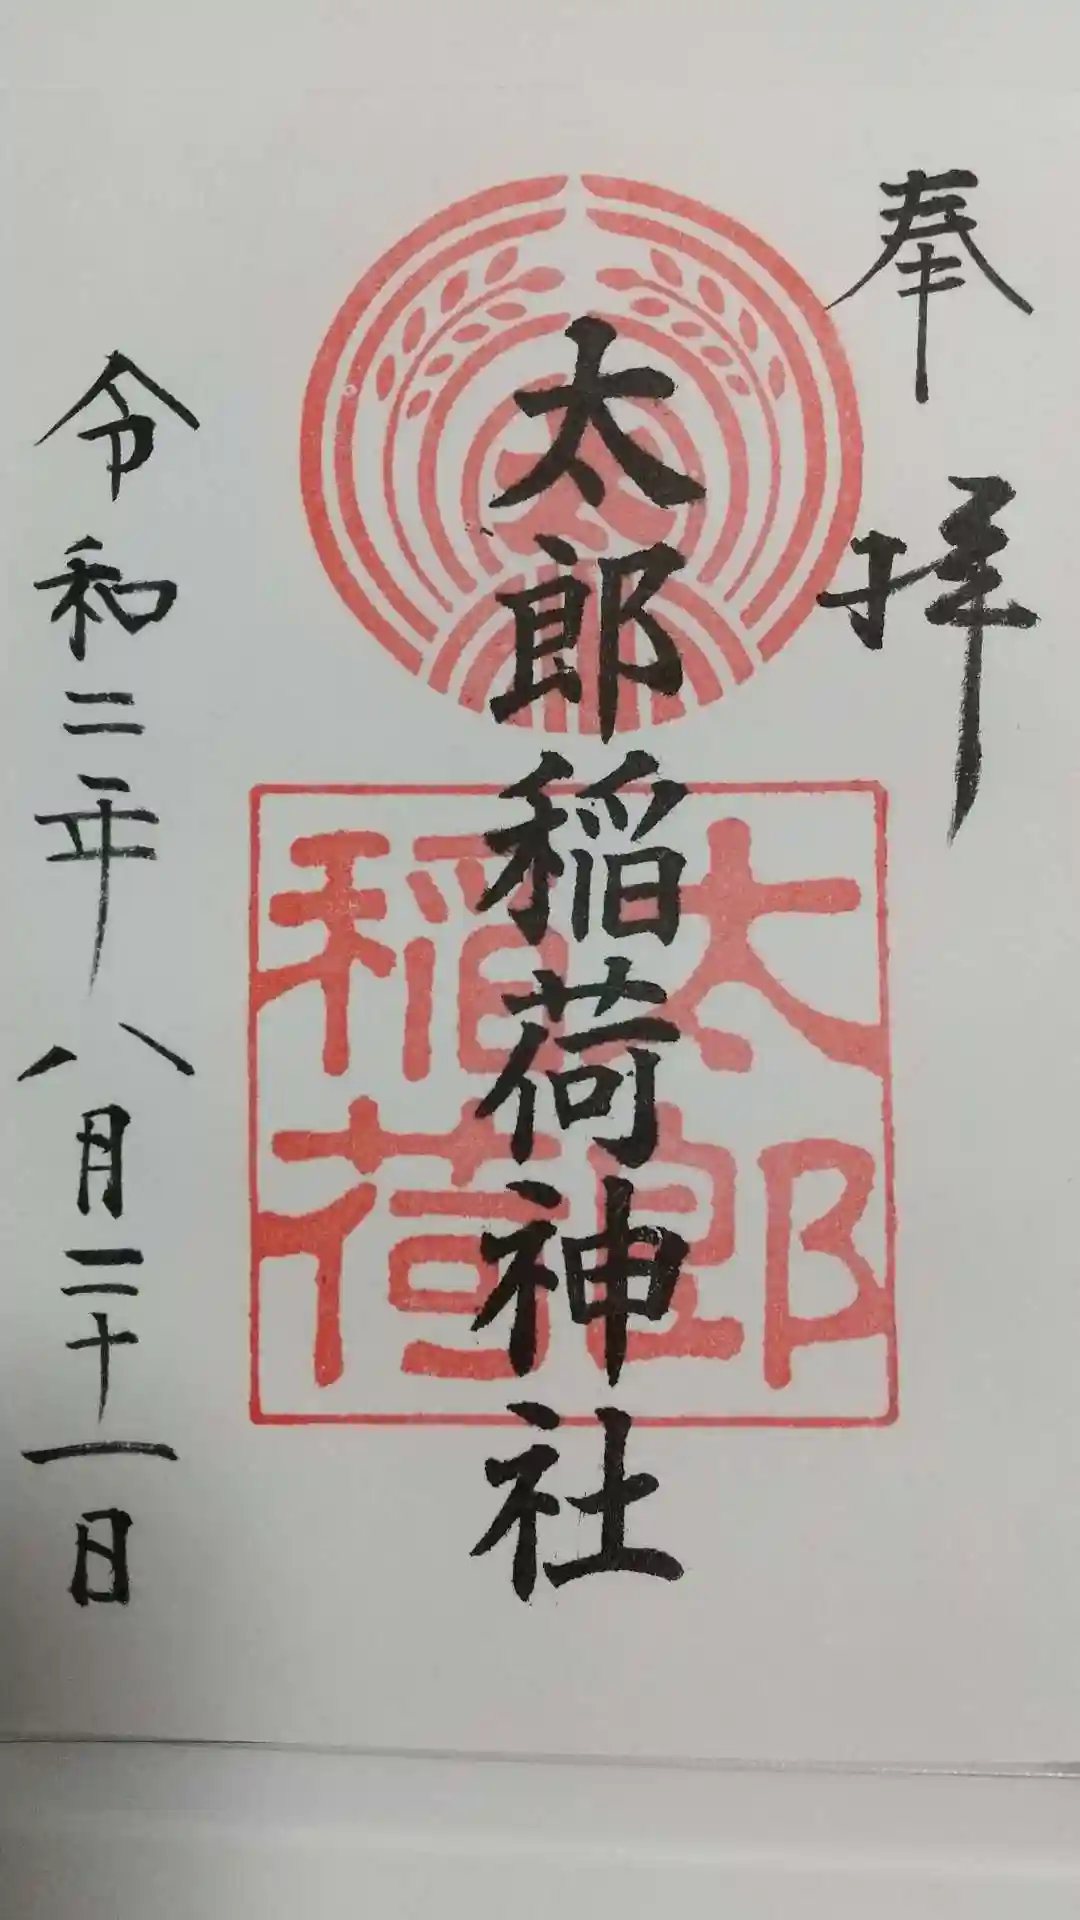 奉拝
太郎稲荷神社
太郎
稲荷
太
令和二年八月二十一日